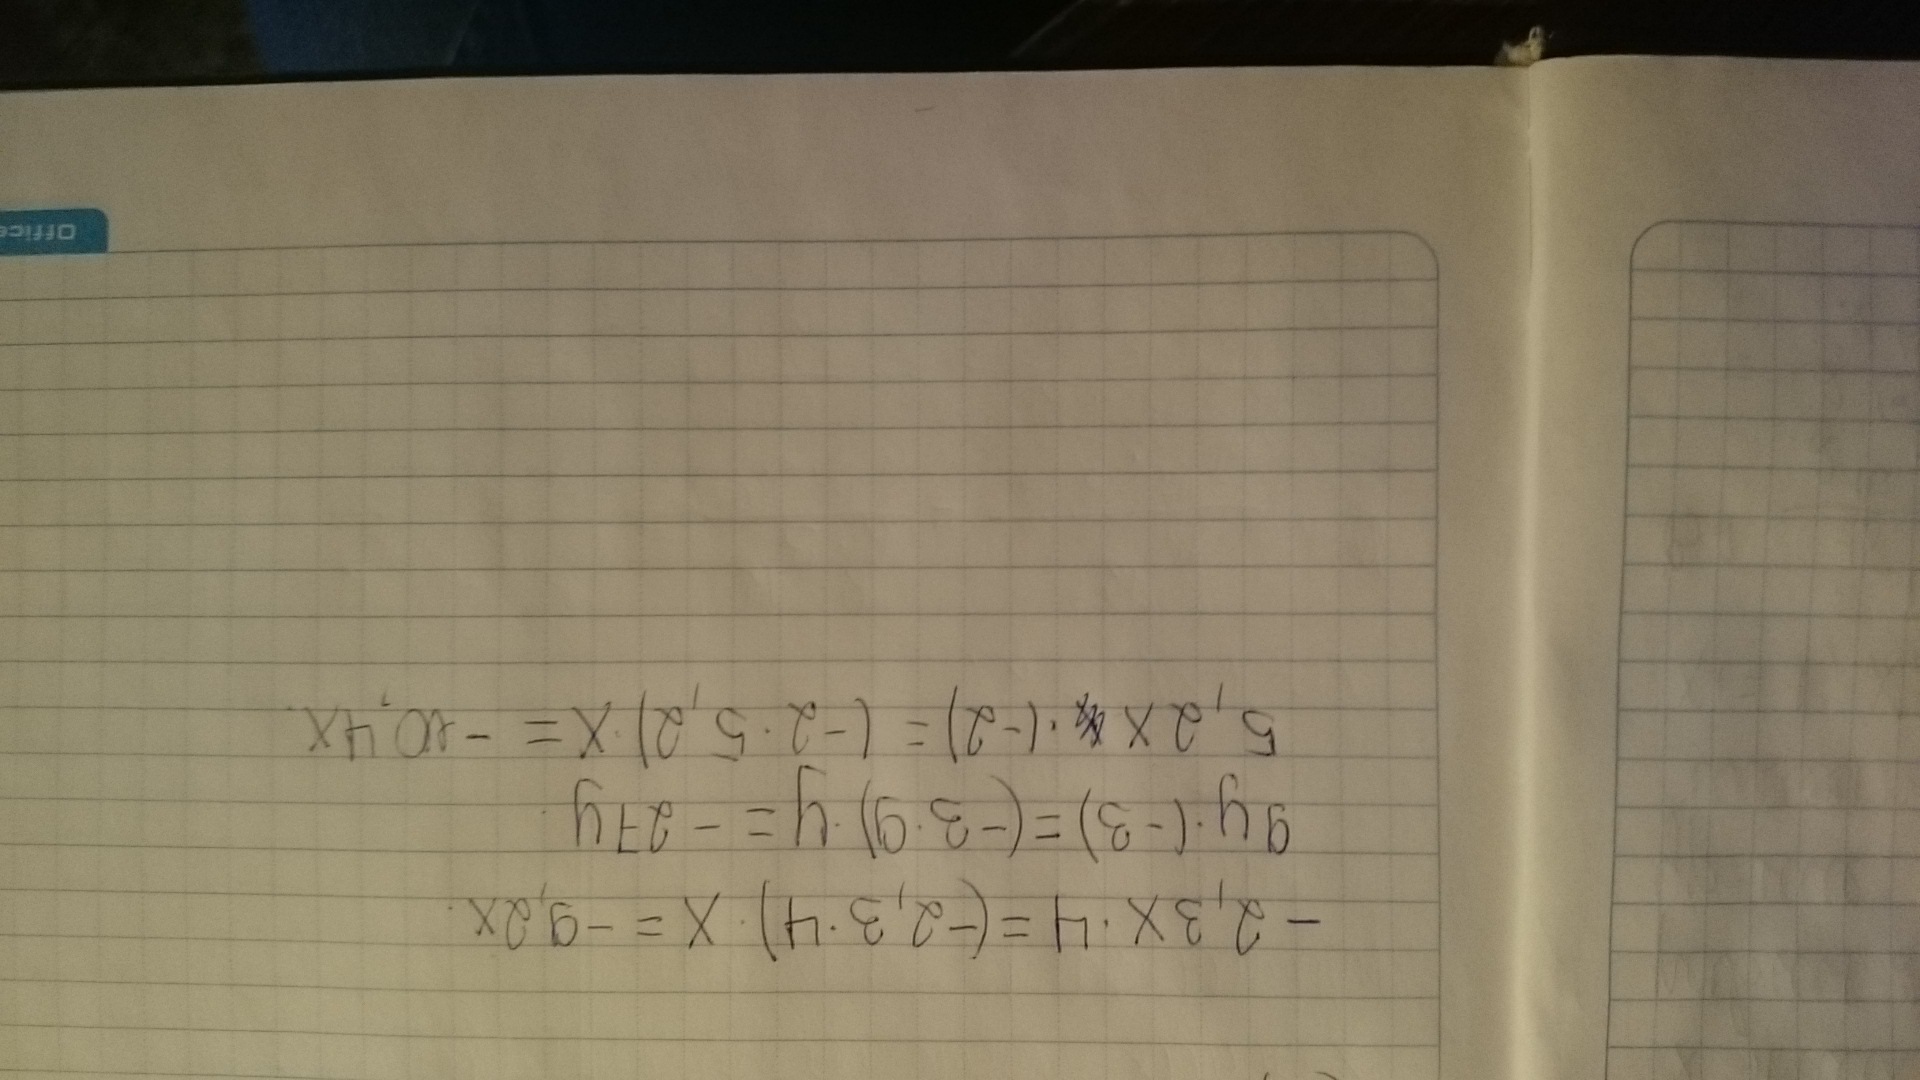 - 2,3x · 4 = (-2,3 · 4) · x = -9,2x
9y · (-3) = (-3 · 9) · y = - 27y
5,2x · (-2) = (-2 · 5,2) · x = - 10,4x
Office